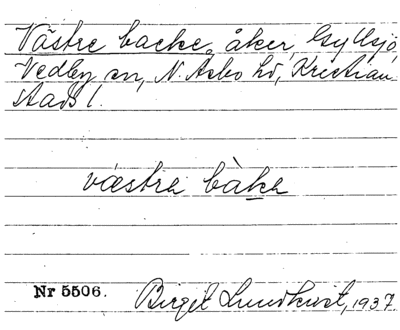 Västre backe, åker, Gyllsjö,
Vedby sn, N. Asbo hd, Kristian-
stads l.
væstra bàka
Nr 5506.
Birgit Lundkvist, 1937.